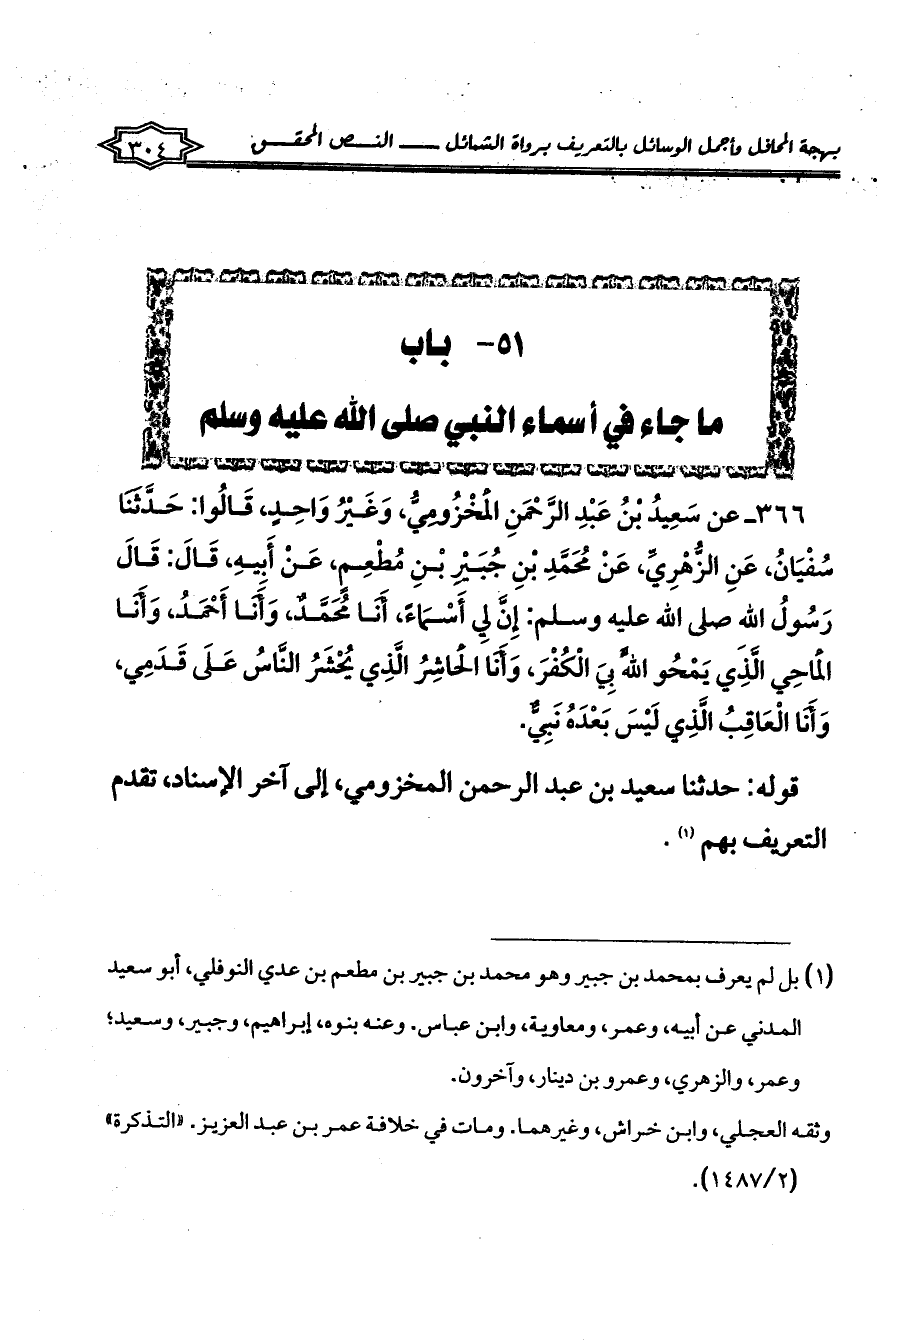 بهجة المحافل وأجمل الوسائل بالتعريف برواة الشمائل ـــ النـص المحقـق
٣٠٤
٥١- بـاب
ما جاء في أسماء النبي صلى الله عليه وسلم
٣٦٦ـ عن سَعِيدُ بْنُ عَبْدِ الرَّحْمَنِ الْمَخْزُومِيُّ، وَغَيْرُ وَاحِدٍ، قَالُوا: حَدَّثَنَا
سُفْيَانُ، عَنِ الزُّهْرِيِّ، عَنْ مُحَمَّدِ بْنِ جُبَيْرِ بْنِ مُطْعِمٍ، عَنْ أَبِيهِ، قَالَ: قَالَ
رَسُولُ الله صلى الله عليه وسلم: إِنَّ لِي أَسْمَاءً، أَنَا مُحَمَّدٌ، وَأَنَا أَحْمَدُ، وَأَنَا
الْمَاحِي الَّذِي يَمْحُو اللهُ بِيَ الْكُفْرَ، وَأَنَا الْحَاشِرُ الَّذِي يُحْشَرُ النَّاسُ عَلَى قَدَمِي،
وَأَنَا الْعَاقِبُ الَّذِي لَيْسَ بَعْدَهُ نَبِيٌّ.
قوله: حدثنا سعيد بن عبد الرحمن المخزومي، إلى آخر الإسناد، تقدم
التعريف بهم (١) .
(١) بل لم يعرف بمحمد بن جبير وهو محمد بن جبير بن مطعم بن عدي النوفلي، أبو سعيد
المدني عن أبيه، وعمر، ومعاوية، وابن عباس. وعنه بنوه، إبراهيم، وجبير، وسعيد؛
وعمر، والزهري، وعمرو بن دينار، وآخرون.
وثقه العجلي، وابن خراش، وغيرهما. ومات في خلافة عمر بن عبد العزيز. «التذكرة»
(١٤٨٧/٢).